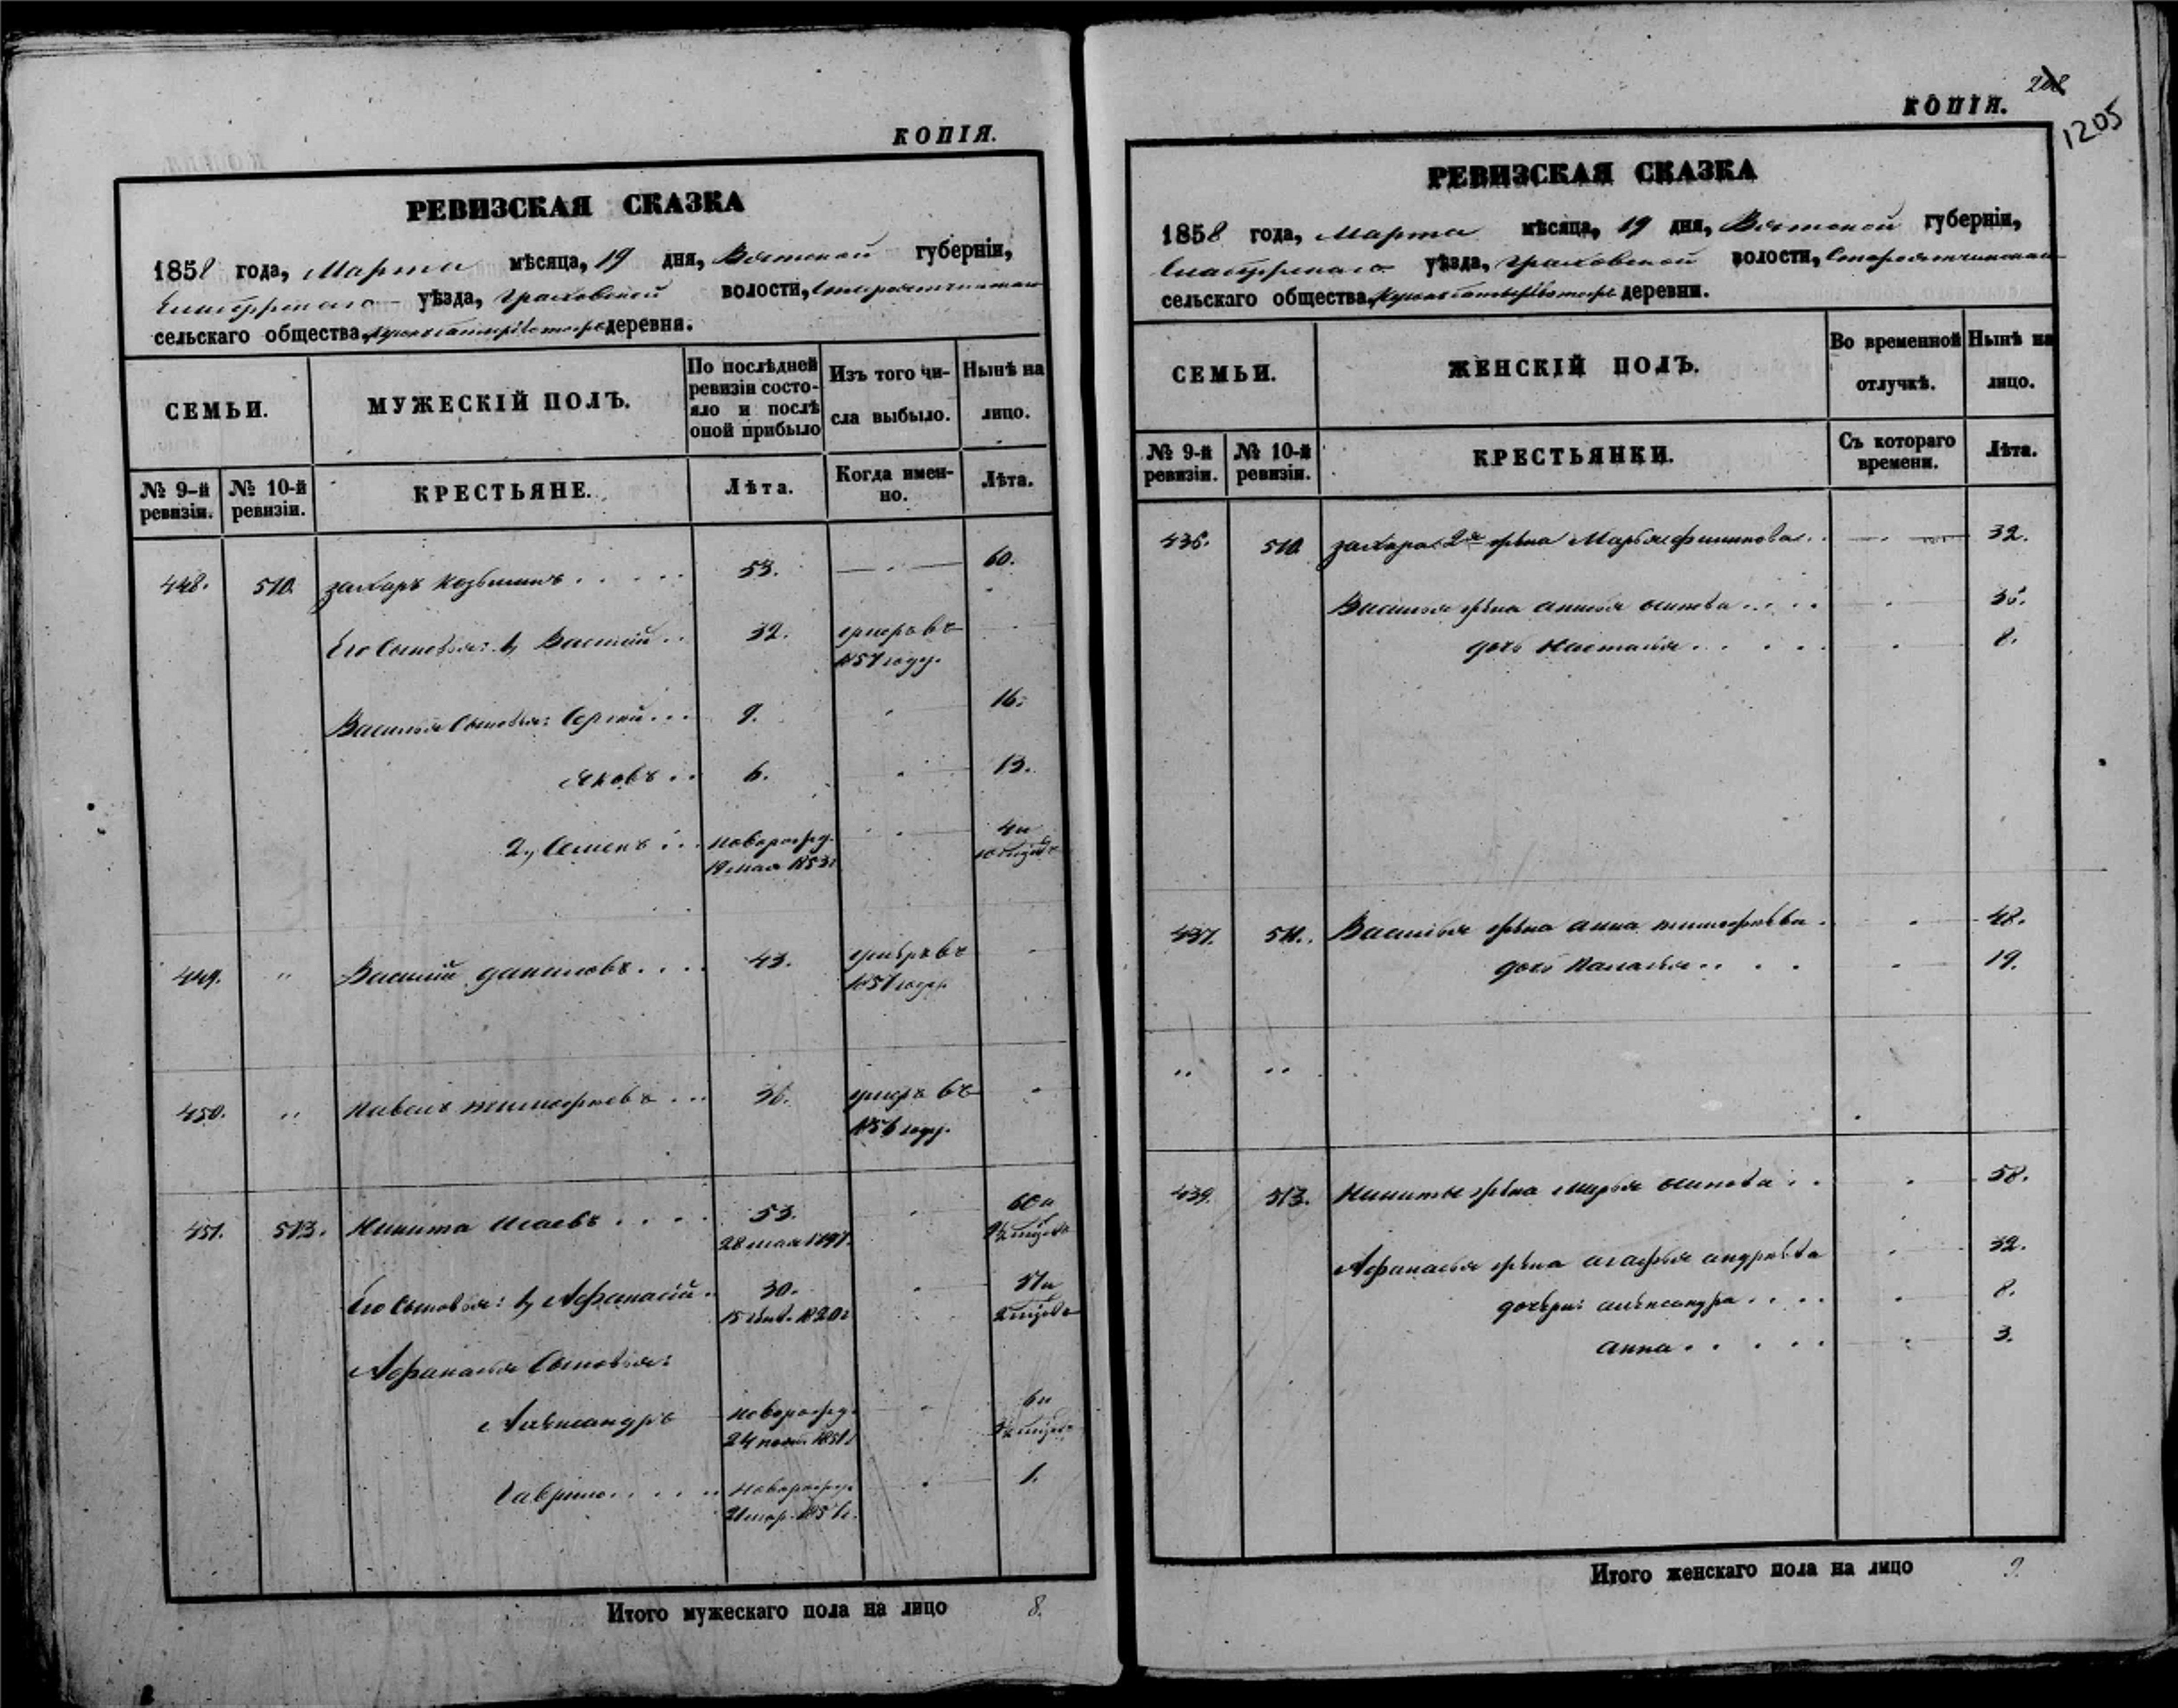 КОПІЯ.
РЕВИЗСКАЯ СКАЗКА
1858 года, Марта мѣсяца, 19 дня, Вятской губерніи,
Елабужскаго уѣзда, Граховской волости,
сельскаго общества, деревня.
СЕМЬИ.
МУЖЕСКІЙ ПОЛЪ.
По послѣдней ревизіи состо-
яло и послѣ
оной прибыло
Изъ того чи-
сла выбыло.
Нынѣ на
лицо.
№ 9-й ревизіи.
№ 10-й ревизіи.
КРЕСТЬЯНЕ.
Лѣта.
Когда имен-
но.
Лѣта.
448. 510. Захаръ Козьминъ . . . . . 53. 60.
Его Сыновья: 1, Василій . . 32. умеръ въ
1857 году.
Василья Сыновья: Сергій . . . 9. 16.
Яковъ . . 6. 13.
2, Семенъ . . . новорожд. 4 и
19 мая 1853 10 мѣсяц.
449. " Василій Даниловъ . . . . 43. умеръ въ
1857 году
450. " Павелъ Тимофѣевъ . . . 36. умеръ въ
1856 году.
451. 513. Никита Исаевъ . . . . 53. 60 и
28 мая 1797.
Его Сыновья: 1, Афанасій . 30. 37 и
15 1820 2
Афанасья Сыновья:
Александръ новорожд. 6 и
24 1851
Гаврило . . . . . новорожд. 1.
21 мар. 1857.
Итого мужескаго пола на лицо 8.
208
1205
КОПІЯ.
РЕВИЗСКАЯ СКАЗКА
1858 года, Марта мѣсяца, 19 дня, Вятской губерніи,
Елабужскаго уѣзда, Граховской волости,
сельскаго общества, деревни.
СЕМЬИ.
ЖЕНСКІЙ ПОЛЪ.
Во временной
отлучкѣ.
Нынѣ на
лицо.
№ 9-й ревизіи.
№ 10-й ревизіи.
КРЕСТЬЯНКИ.
Съ котораго
времени.
Лѣта.
436. 510. Захара 2я жена Марья Филипова . . 32.
Василья жена Анисья Осипова . . . . 35.
дочь Настасья . . . . . 8.
437. 511. Василья жена Анна Тимофѣева . 48.
дочь Паласья . . . . 19.
" "
439. 513. Никиты жена Марья Осипова . . 58.
Афанасья жена Агафья Андреева 32.
дочери: Александра . . . . 8.
Анна . . . . . 3.
Итого женскаго пола на лицо 9.